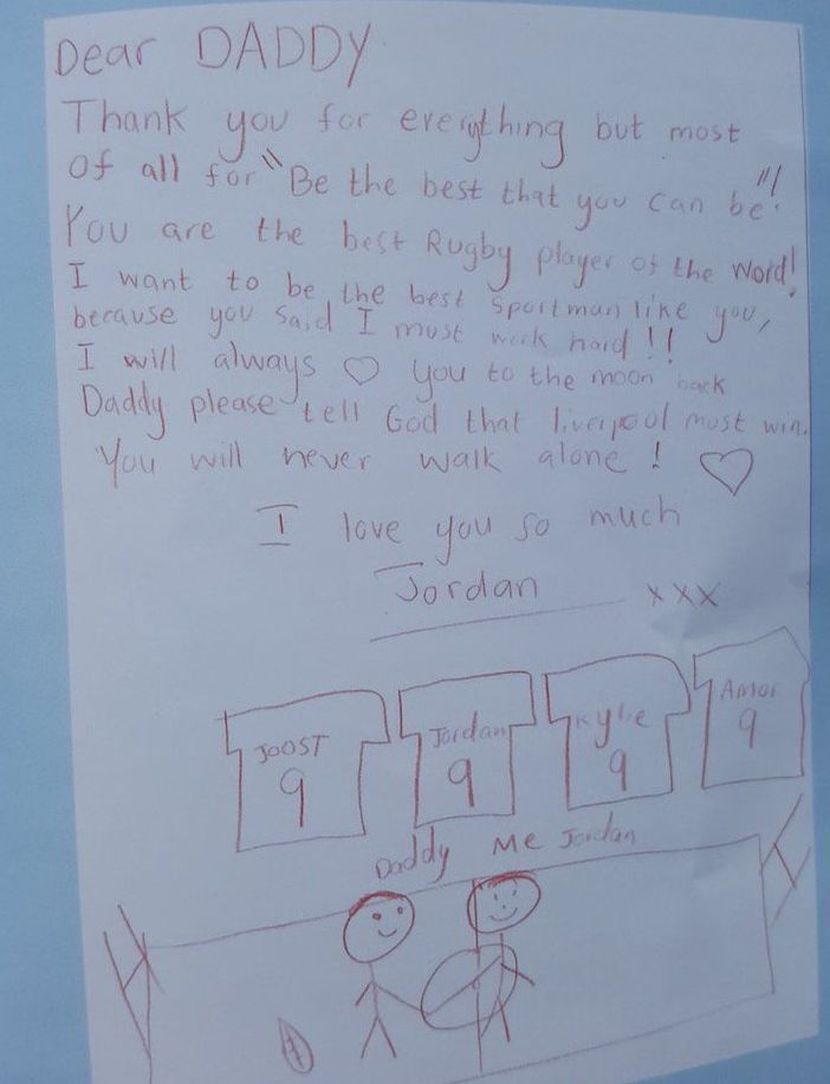 Dear DADDY
Thank you for everything but most
of all for "Be the best that you can be"!
You are the best Rugby player of the word!
I want to be the best sportman like you,
because you said I must work hard!!
I will always ♡ you to the moon back
Daddy please tell God that liverpool must win.
You will never walk alone! ♡
I love you so much
Jordan xxx
JOOST Jordan Kylie Amor
9 9 9 9
Daddy Me Jordan